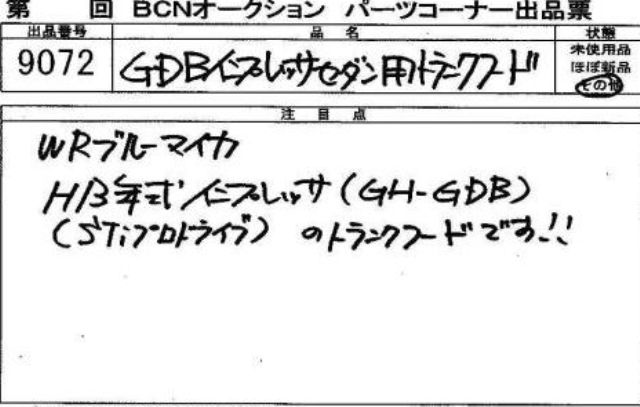 第 回 BCNオークション パーツコーナー出品票
出品番号 品名 状態
9072 GDBインプレッサセダン用トランクフード 未使用品
ほぼ新品
その他
注目点
WRブルーマイカ
H13年式インプレッサ(GH-GDB)
(STiプロドライブ)のトランクフードです!!